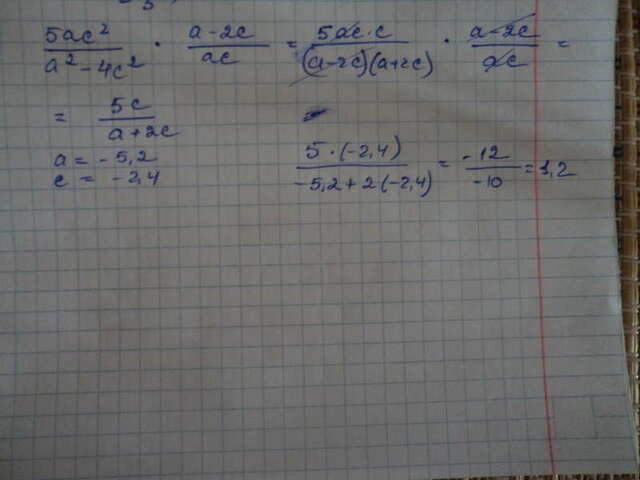 5ac²/a² - 4c² · a - 2c/ac = 5ac·c/(a-2c)(a+2c) · a - 2c/ac =
= 5c/a + 2c
a = - 5,2
c = - 2,4
5·(-2,4)/-5,2+2(-2,4) = -12/-10 = 1,2